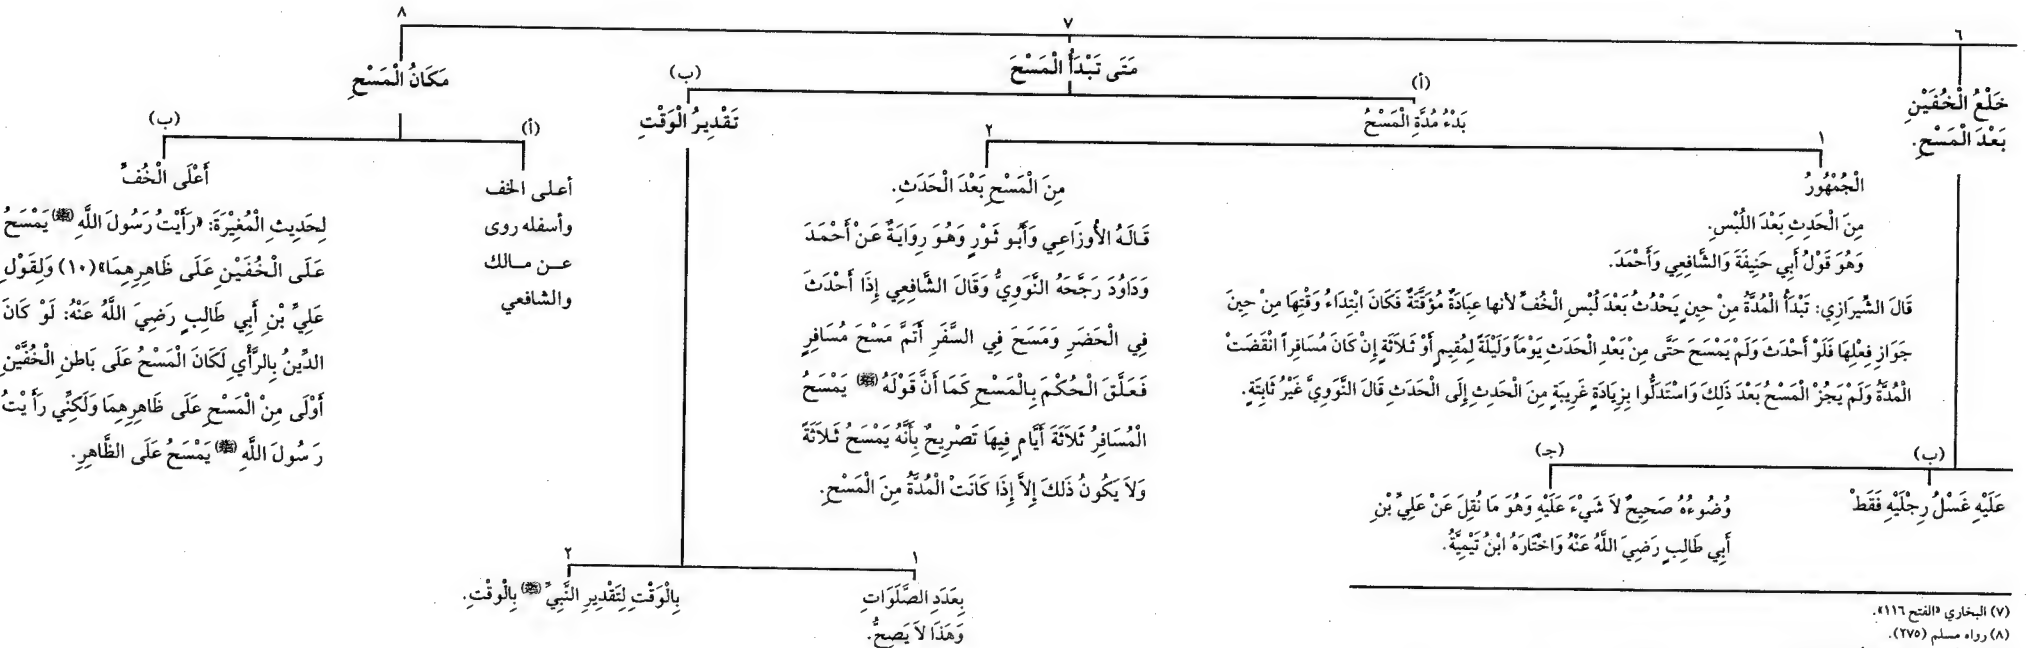 ٦
خَلْعُ الْخُفَّيْنِ
بَعْدَ الْمَسْحِ.
(ب)
عَلَيْهِ غَسْلُ رِجْلَيْهِ فَقَطْ
(جـ)
وُضُوءُهُ صَحِيحٌ لاَ شَيْءَ عَلَيْهِ وَهُوَ مَا نُقِلَ عَنْ عَلِيِّ بْنِ
أَبِي طَالِبٍ رَضِيَ اللَّهُ عَنْهُ وَاخْتَارَهُ ابْنُ تَيْمِيَّةَ.
٧
مَتَى تَبْدَأُ الْمَسْحَ
(أ)
بَدْءُ مُدَّةِ الْمَسْحُ
١
الْجُمْهُورُ
مِنَ الْحَدِثِ بَعْدَ اللُّبْسِ.
وَهُوَ قَوْلُ أَبِي حَنِيفَةَ وَالشَّافِعِي وَأَحْمَدَ.
قَالَ الشِّيرَازِي: تَبْدَأُ الْمُدَّةُ مِنْ حِينِ يَحْدُثُ بَعْدَ لُبْسِ الْخُفِّ لأنها عِبَادَةٌ مُؤَقَّتَةٌ فَكَانَ ابْتِدَاءُ وَقْتِهَا مِنْ حِينَ
جَوَازِ فِعْلِهَا فَلَوْ أَحْدَثَ وَلَمْ يَمْسَحَ حَتَّى مِنْ بَعْدِ الْحَدَثِ يَوْمَاً وَلَيْلَةً لِمُقِيمٍ أَوْ ثَلاَثَةٍ إِنْ كَانَ مُسَافِراً انْقَضَتْ
الْمُدَّةُ وَلَمْ يَجُزْ الْمَسْحُ بَعْدَ ذَلِكَ وَاسْتَدَلُّوا بِزِيَادَةٍ غَرِيبَةٍ مِنَ الْحَدِثِ إِلَى الْحَدَثِ قَالَ النَّوَوِيَّ غَيْرُ ثَابِتَةٍ.
٢
مِنَ الْمَسْحِ بَعْدَ الْحَدَثِ.
قَالَهُ الأَوزَاعِي وَأَبُو ثَوْرٍ وَهُوَ رِوَايَةٌ عَنْ أَحْمَدَ
وَدَاوُدَ رَجَّحَهُ النَّوَوِيُّ وَقَالَ الشَّافِعِي إِذَا أَحْدَثَ
فِي الْحَضَرِ وَمَسَحَ فِي السَّفَرِ أَتَمَّ مَسْحَ مُسَافِرٍ
فَعَلَّقَ الْحُكْمَ بِالْمَسْحِ كَمَا أَنَّ قَوْلَهُ (ﷺ) يَمْسَحُ
الْمُسَافِرُ ثَلاَثَةَ أَيَّامٍ فِيهَا تَصْرِيحٌ بِأَنَّهُ يَمْسَحُ ثَلاَثَةً
وَلاَ يَكُونُ ذَلكَ إِلاَّ إِذَا كَانَتْ الْمُدَّةُ مِنَ الْمَسْحِ.
(ب)
تَقْدِيرُ الْوَقْتِ
١
بِعَدَدِ الصَّلَوَاتِ
وَهَذَا لاَ يَصِحُّ.
٢
بِالْوَقْتِ لِتَقْدِيرِ النَّبِيِّ (ﷺ) بِالْوَقْتِ.
٨
مَكَانُ الْمَسْحِ
(أ)
أعلى الخف
وأسفله روى
عــن مــالك
والشافعي
(ب)
أَعْلَى الْخُفِّ
لِحَدِيثِ الْمُغِيْرَةَ: «رَأَيْتُ رَسُولَ اللَّهِ (ﷺ) يَمْسَحُ
عَلَى الْخُفَّيْنِ عَلَى ظَاهِرِهِمَا» (١٠) وَلِقَوْلِ
عَلِيِّ بْنِ أَبِي طَالِبٍ رَضِيَ اللَّهُ عَنْهُ: لَوْ كَانَ
الدِّينُ بِالرَّأْيِ لَكَانَ الْمَسْحُ عَلَى بَاطنِ الْخُفَّيْنِ
أَوْلَى مِنْ الْمَسْحِ عَلَى ظَاهِرِهِمَا وَلَكِنِّي رَأَيْتُ
رَسُولَ اللَّهِ (ﷺ) يَمْسَحُ عَلَى الظَّاهِرِ.
(٧) البخاري «الفتح ١١٦».
(٨) رواه مسلم (٢٧٥).